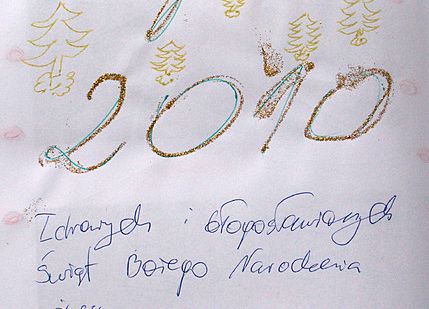 2010
Zdrowych i błogosławionych
Świąt Bożego Narodzenia